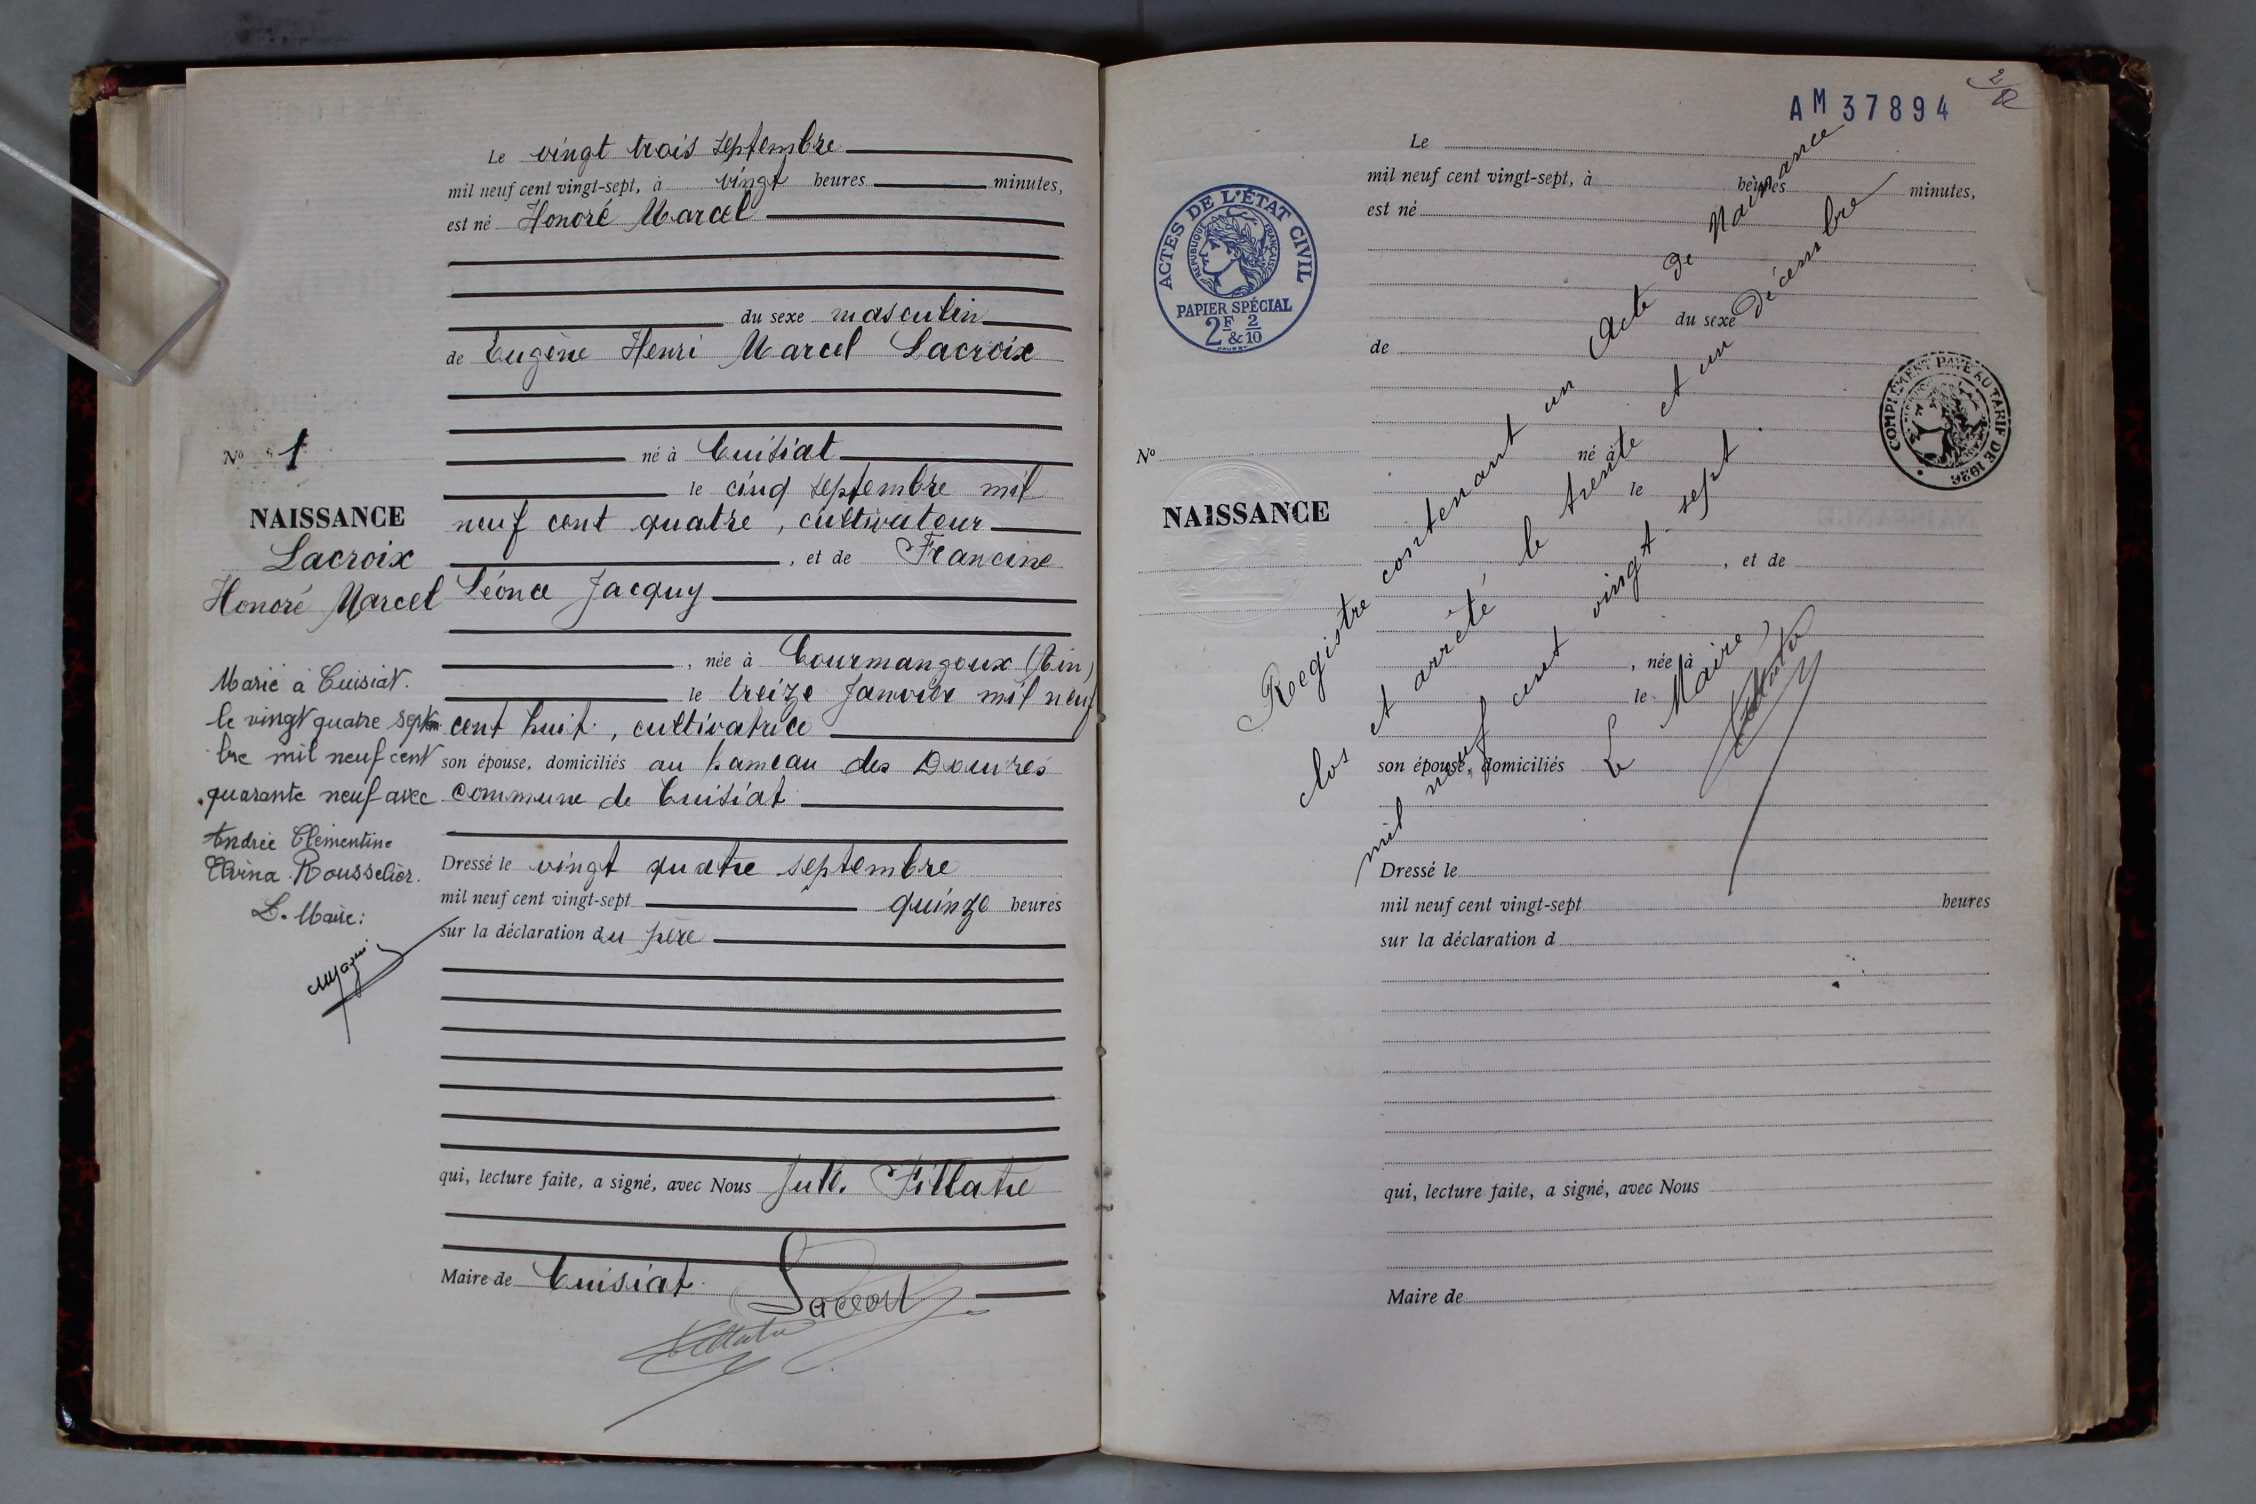 Le vingt trois septembre
mil neuf cent vingt-sept, à vingt heures minutes,
est né Honoré Marcel
du sexe masculin
de Eugène Henri Marcel Lacroix
né à Cuisiat
le cinq septembre mil
neuf cent quatre, cultivateur
, et de Francine
Léonce Jacquy
, née à Courmangoux (Ain)
le treize Janvier mil neuf
cent huit, cultivatrice
son épouse, domiciliés au hameau des Douvres
commune de Cuisiat
Dressé le vingt quatre septembre
mil neuf cent vingt-sept quinze heures
sur la déclaration du père
qui, lecture faite, a signé, avec Nous Fillatre
Maire de Cuisiat
Lacroix
Fillatre
No 1
NAISSANCE
Lacroix
Honoré Marcel
Marié à Cuisiat.
le vingt quatre septem
bre mil neuf cent
quarante neuf avec
Andrée Clémentine
Rousselier.
Le Maire:
AM 37894
ACTES DE L'ÉTAT CIVIL
RÉPUBLIQUE FRANÇAISE
PAPIER SPÉCIAL
2F & 2/10
COMPLÉMENT PAYÉ AU TARIF DE 1926
No
NAISSANCE
Le
mil neuf cent vingt-sept, à heures minutes,
est né
du sexe
de
né à
le
, et de
, née à
le
son épouse, domiciliés
Dressé le
mil neuf cent vingt-sept heures
sur la déclaration d
qui, lecture faite, a signé, avec Nous
Maire de
Registre contenant un Acte de Naissance
clos et arrêté le trente et un décembre
mil neuf cent vingt sept.
Le Maire,
Fillatre